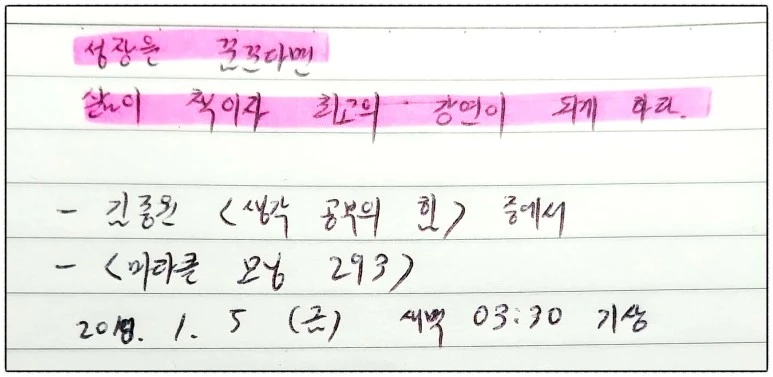 성장을 꿈꾼다면
삶이 책이자 최고의 강연이 되게 하라.
- 김종원 <생각 공부의 힘> 중에서
- <미라클 모닝 293>
2018. 1. 5 (금) 새벽 03:30 기상